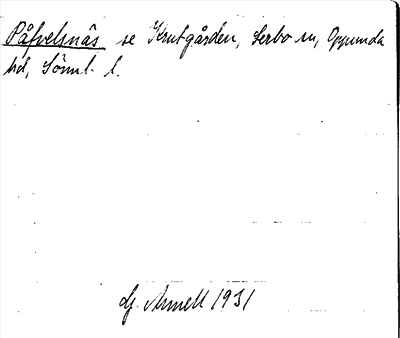 Påfvelsnäs se Krutgården, Lerbo sn, Oppunda
hd, Söml. l.
Lg. Arnell 1931